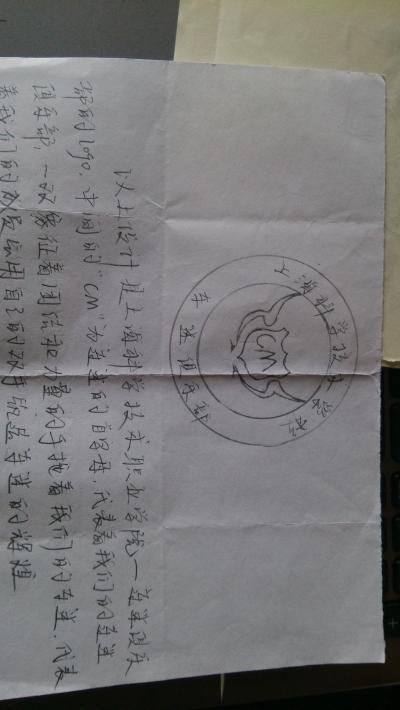 上海科学技术学院
CM
车迷俱乐部
以上设计是上海科学技术职业学院一车迷俱乐
部的logo.中间的“CM”为车迷的首字母.代表着我们的车迷
俱乐部.一双象征着团结和力量的手拖着我们的车迷.代表
着我们的成员会用自己的双手缔造车迷的辉煌